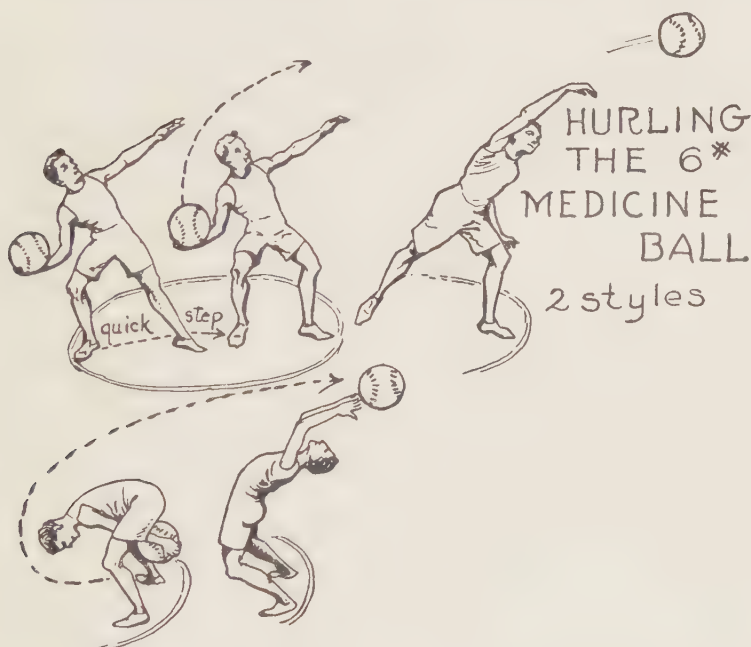 HURLING
THE 6#
MEDICINE
BALL
2 styles
quick step